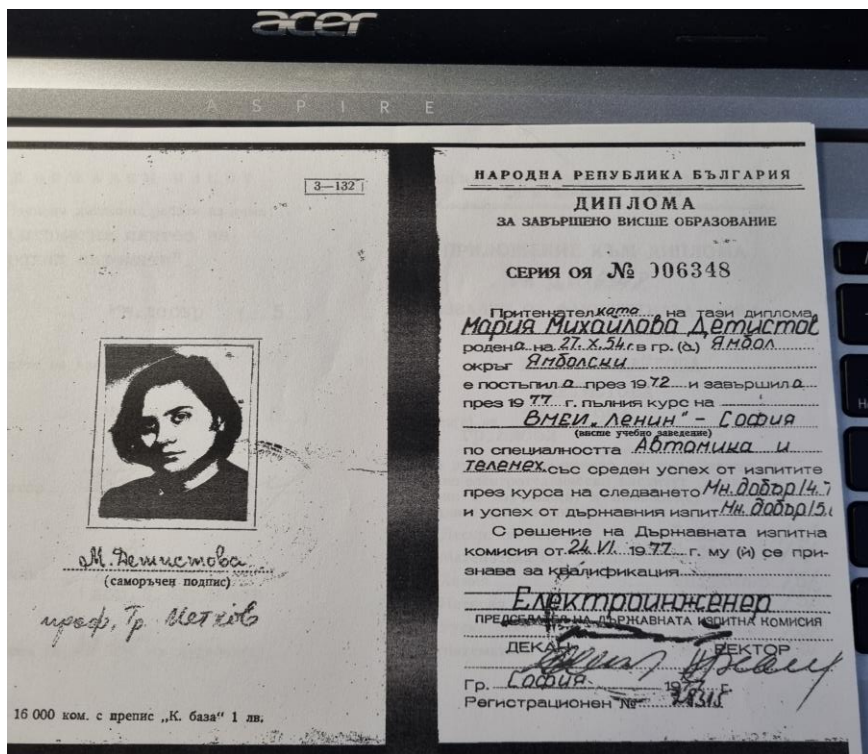 acer
ASPIRE
3—132
М. Детистова
(саморъчен подпис)
проф. Тр.
16 000 ком. с препис „К. база“ 1 лв.
НАРОДНА РЕПУБЛИКА БЪЛГАРИЯ
ДИПЛОМА
ЗА ЗАВЪРШЕНО ВИСШЕ ОБРАЗОВАНИЕ
СЕРИЯ ОЯ № 006348
Притежателката на тази диплома
Мария Михайлова Детистов
родена на 27.X.54 г. в гр. (с.) Ямбол
окръг Ямболски
е постъпила през 1972 и завършила
през 1977 г. пълния курс на
ВМЕИ „Ленин“ - София
(висше учебно заведение)
по специалността Автоматика и
телемех. със среден успех от изпитите
през курса на следването Мн. добър /4.
и успех от държавния изпит Мн. добър /5.
С решение на Държавната изпитна
комисия от 24.VI. 1977 г. му (й) се при-
знава за квалификация
Електроинженер
ПРЕДСЕДАТЕЛ НА ДЪРЖАВНАТА ИЗПИТНА КОМИСИЯ
ДЕКАН РЕКТОР
Гр. София 1977 г.
Регистрационен №